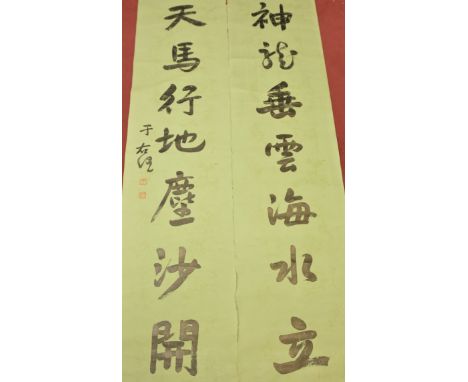 神龙垂雲海水立
天馬行地塵沙開
于右任